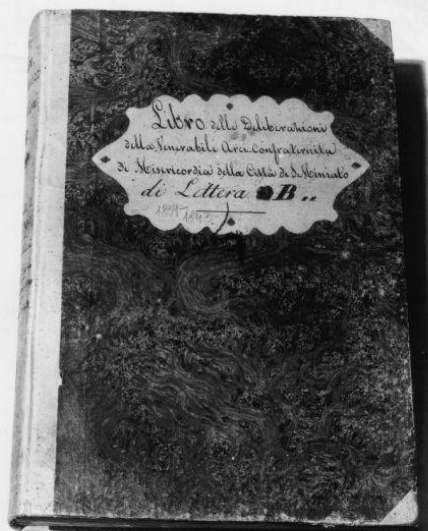 Libro delle Deliberazioni
della Venerabile Arci Confraternita
di Misericordia della Città di S. Miniato
di Lettera B..
1843